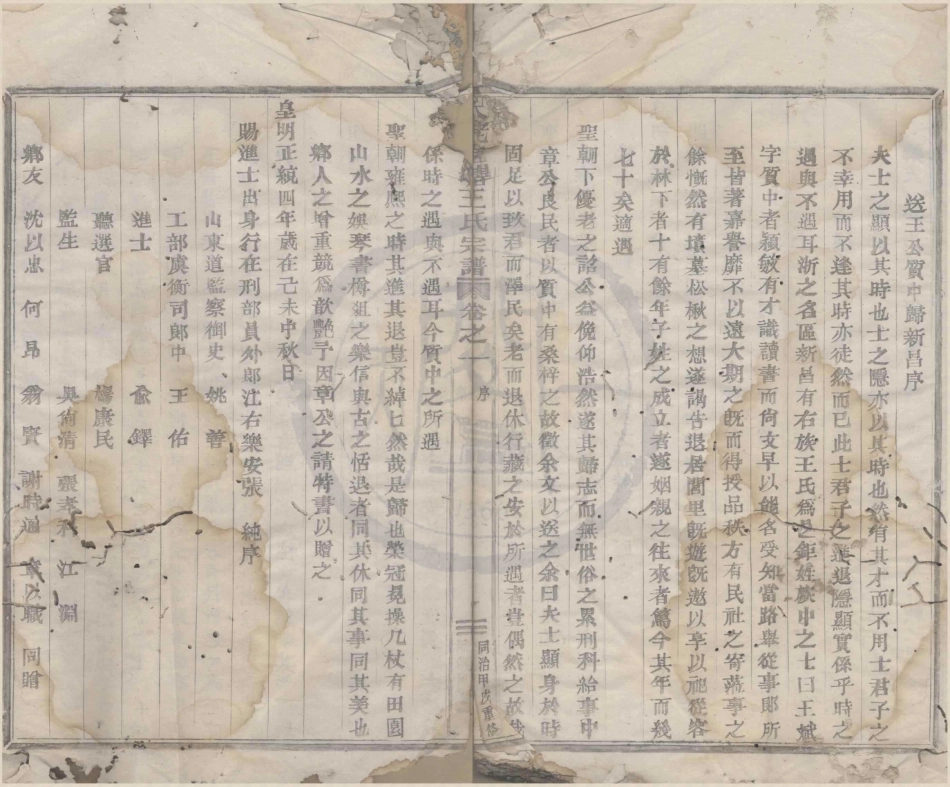 送王公質中歸新昌序
夫士之顯以其時也士之隱亦以其時也然有其才而不用士君子之
不幸用而不逢其時亦徒然而已此士君子之進退隱顯實係乎時之
遇與不遇耳浙之名區新昌有右族王氏爲邑鉅姓族中之士曰王斌
字質中者穎敏有才識讀書而尚文早以能名受知當路舉從事郎所
至皆著嘉譽靡不以遠大期之既而得授品秩方有民社之寄蒞事之
餘慨然有墳墓松楸之想遂謁告退居閭里既遊既遨以享以祀從容
於林下者十有餘年子姓之成立者遂姻親之往來者篤今其年而幾
七十矣適遇
聖朝下優老之詔公益俛仰浩然遂其歸志而無世俗之累刑科給事中
章公良民者以質中有桑梓之故徵余文以送之余曰夫士顯身於時
固足以致君而澤民矣老而退休行藏之安於所遇者豈偶然之故哉
係時之遇與不遇耳今質中之所遇
聖朝雍熙之時其進其退豈不綽七然哉是歸也榮冠冕操几杖有田園
山水之娛琴書樽俎之樂信與古之恬退者同其休同其事同其美也
鄉人之增重競爲歆艷予因章公之請特書以贈之
皇明正統四年歲在己未中秋日
賜進士出身行在刑部員外郎江右樂安張 純序
山東道監察御史 姚 善
工部虞衡司郎中 王 佑
進士 俞 鐸
聽選官 楊廉民
監生 吳尚清 張孝和 江 淵
鄉友 沈以忠 何 昂 翁 賢 謝時通 章以職 同贈
王氏宗譜 卷之一 序
同治甲戌重修